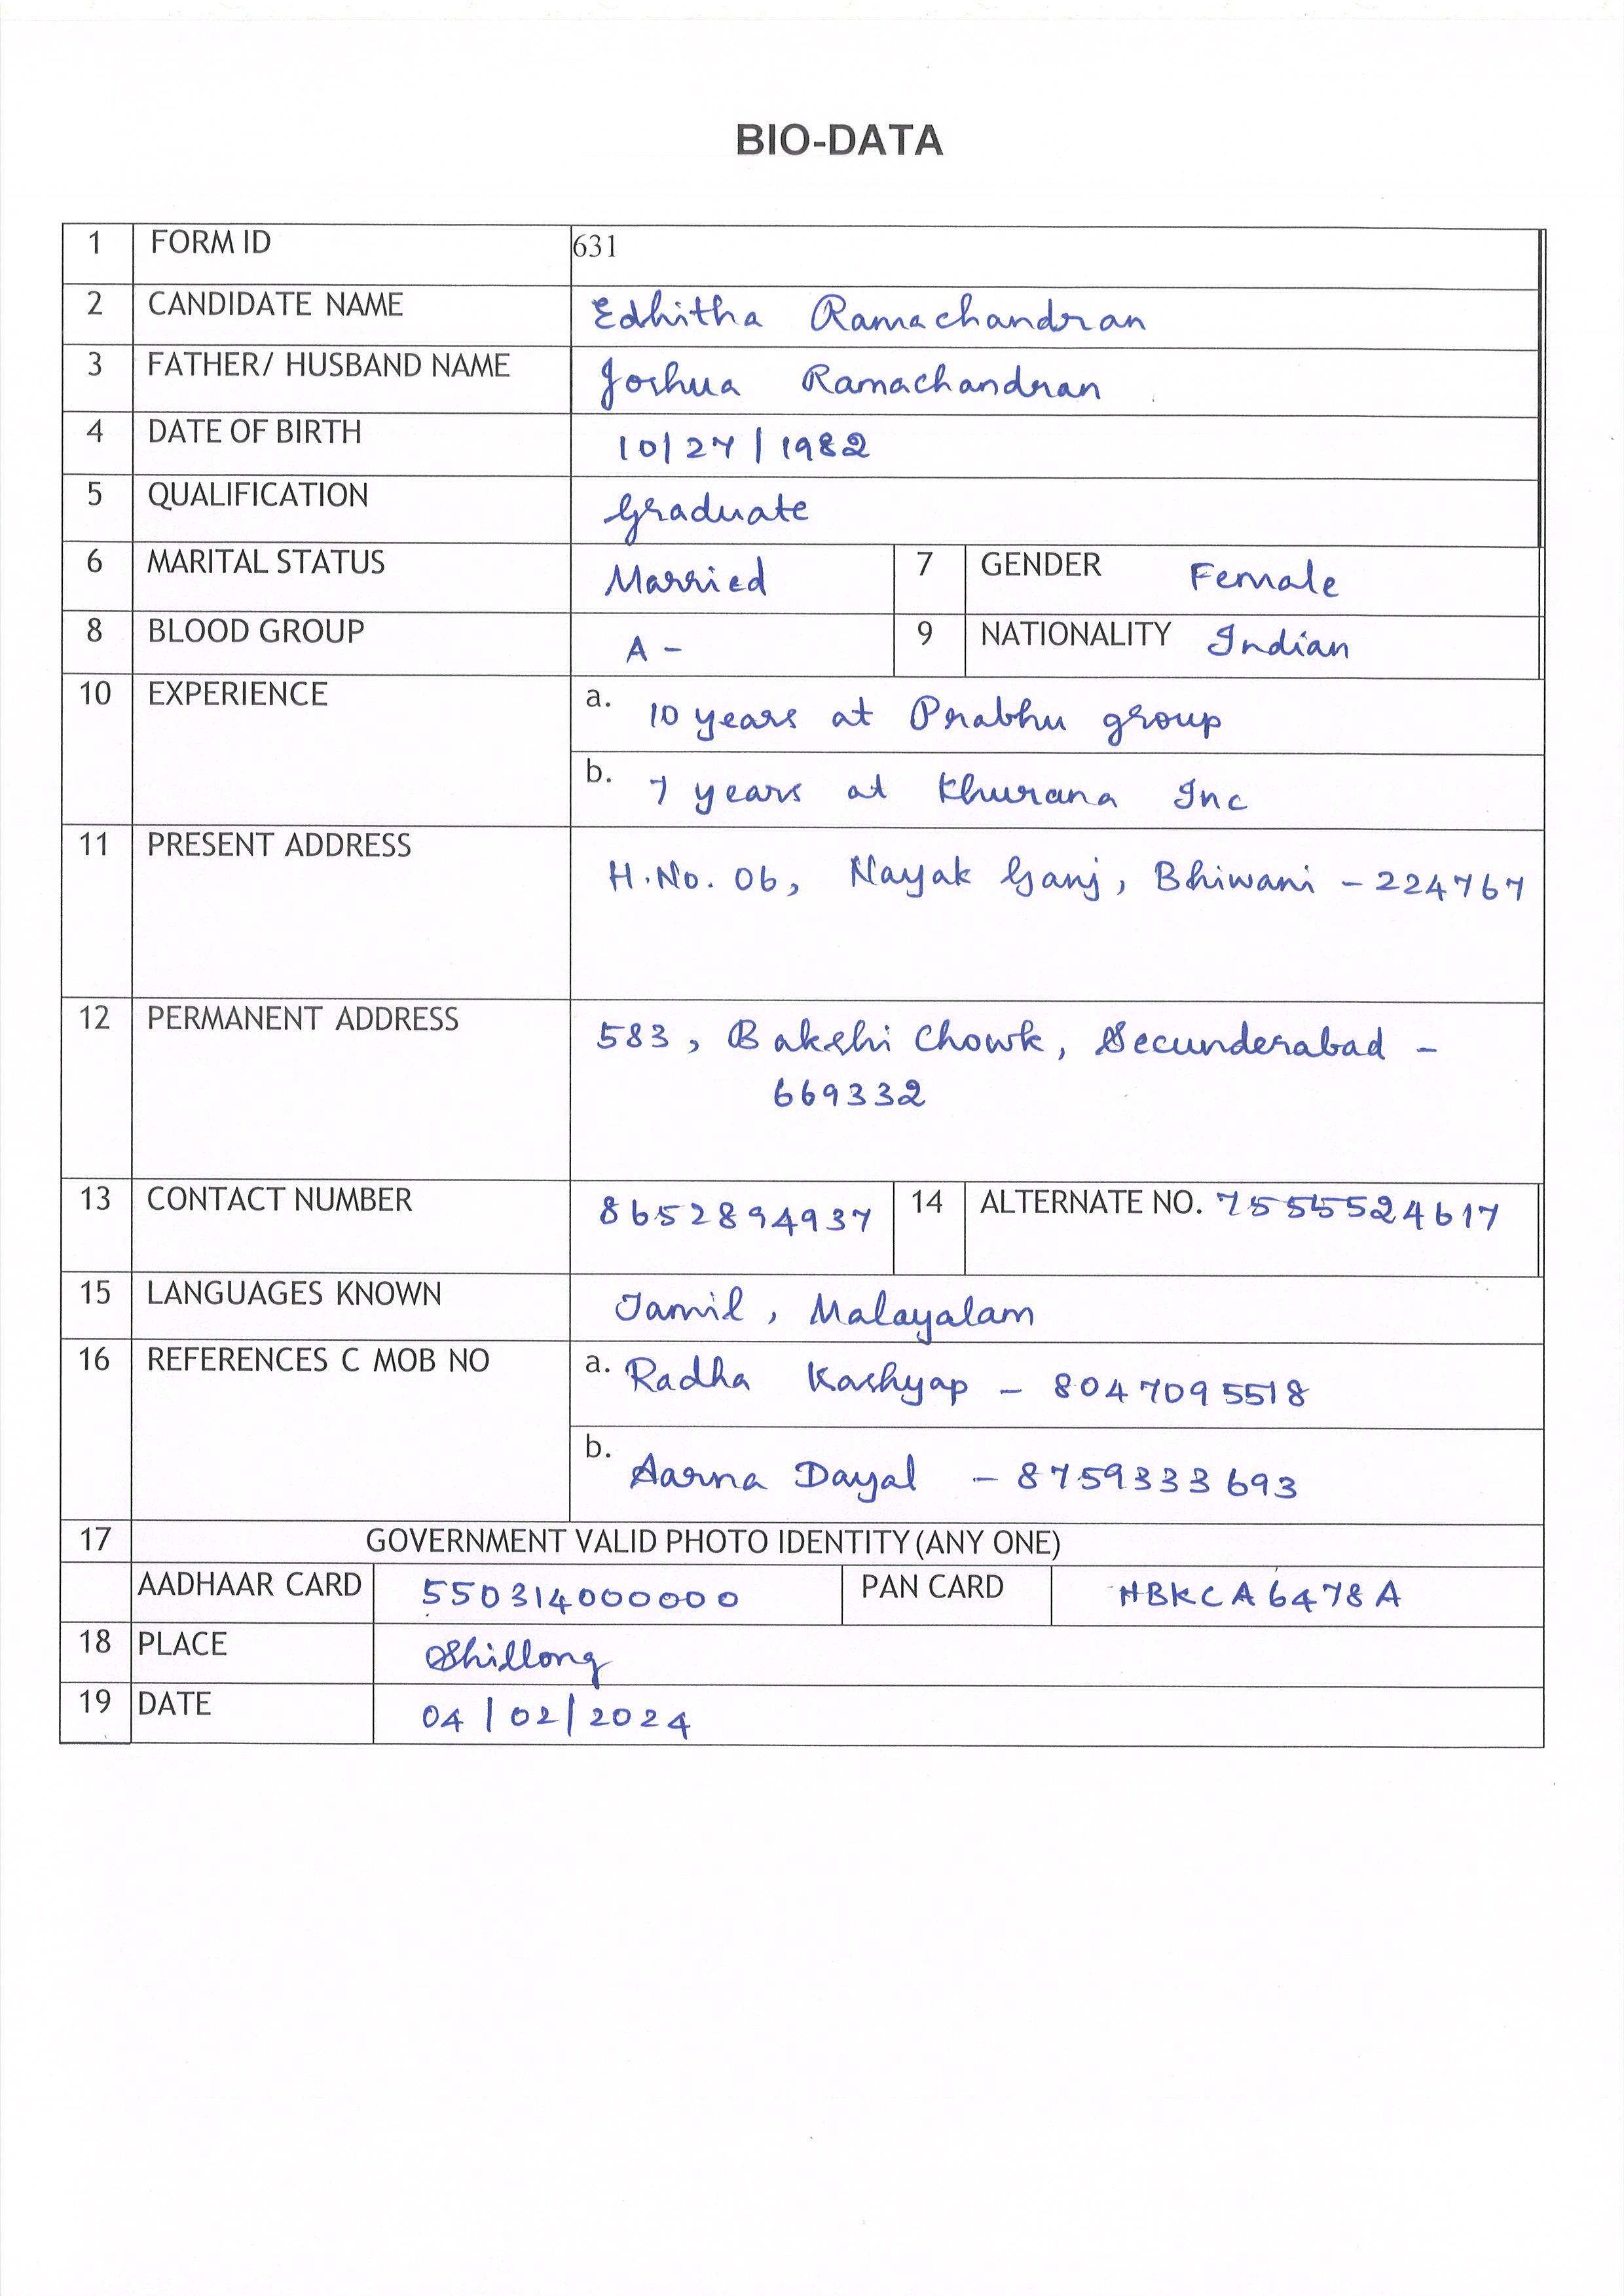 BIO-DATA
1 FORM ID 631
2 CANDIDATE NAME Edhitha Ramachandran
3 FATHER/ HUSBAND NAME Joshua Ramachandran
4 DATE OF BIRTH 10/27/1982
5 QUALIFICATION Graduate
6 MARITAL STATUS Married 7 GENDER Female
8 BLOOD GROUP A - 9 NATIONALITY Indian
10 EXPERIENCE a. 10 years at Prabhu group
b. 7 years at Khurana Inc
11 PRESENT ADDRESS H.No. 06, Nayak Ganj, Bhiwani - 224767
12 PERMANENT ADDRESS 583, Bakshi Chowk, Secunderabad -
669332
13 CONTACT NUMBER 8652894937 14 ALTERNATE NO. 7555524617
15 LANGUAGES KNOWN Tamil, Malayalam
16 REFERENCES C MOB NO a. Radha Kashyap - 8047095518
b. Aarna Dayal - 8759333693
17 GOVERNMENT VALID PHOTO IDENTITY (ANY ONE)
AADHAAR CARD 550314000000 PAN CARD HBKCA6478A
18 PLACE Shillong
19 DATE 04/02/2024